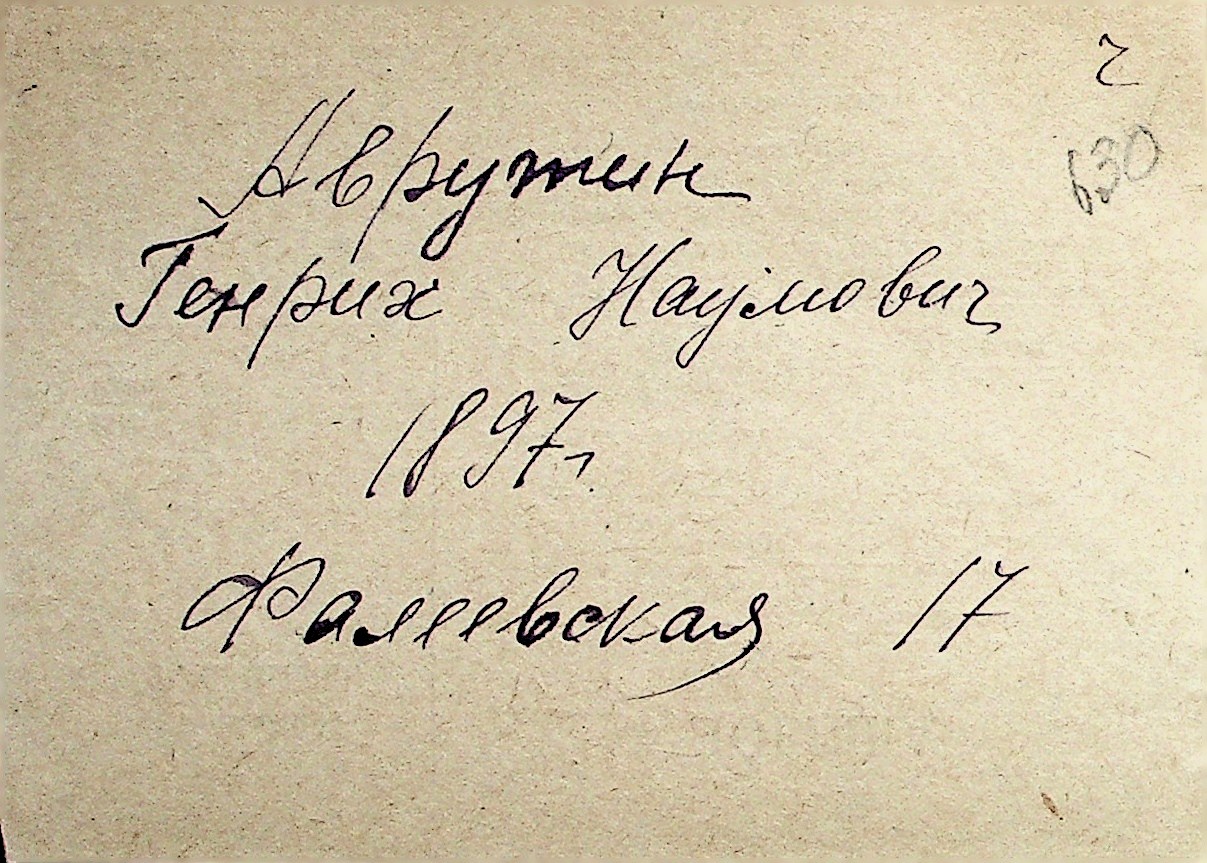 ч
630
Аврутин
Генрих Наумович
1897г
Фалеевская 17